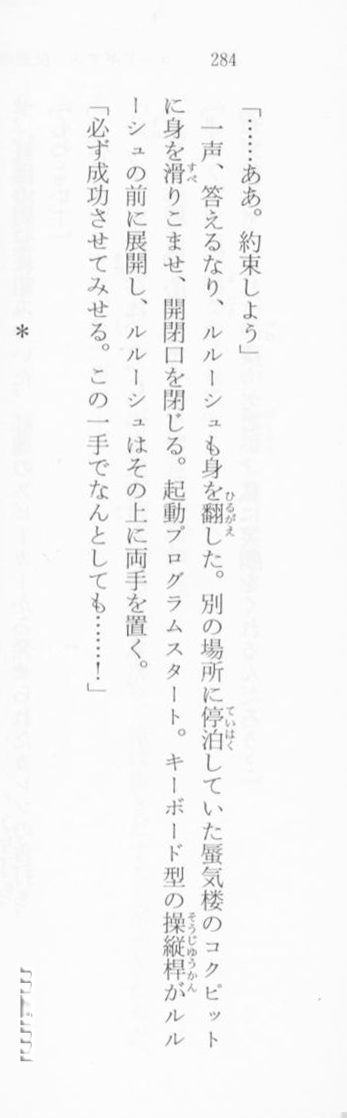 284
「……ああ。約束しよう」
一声、答えるなり、ルルーシュも身を翻した。別の場所に停泊していた蜃気楼のコクピット
に身を滑りこませ、開閉口を閉じる。起動プログラムスタート。キーボード型の操縦桿がルル
ーシュの前に展開し、ルルーシュはその上に両手を置く。
「必ず成功させてみせる。この一手でなんとしても……！」
＊